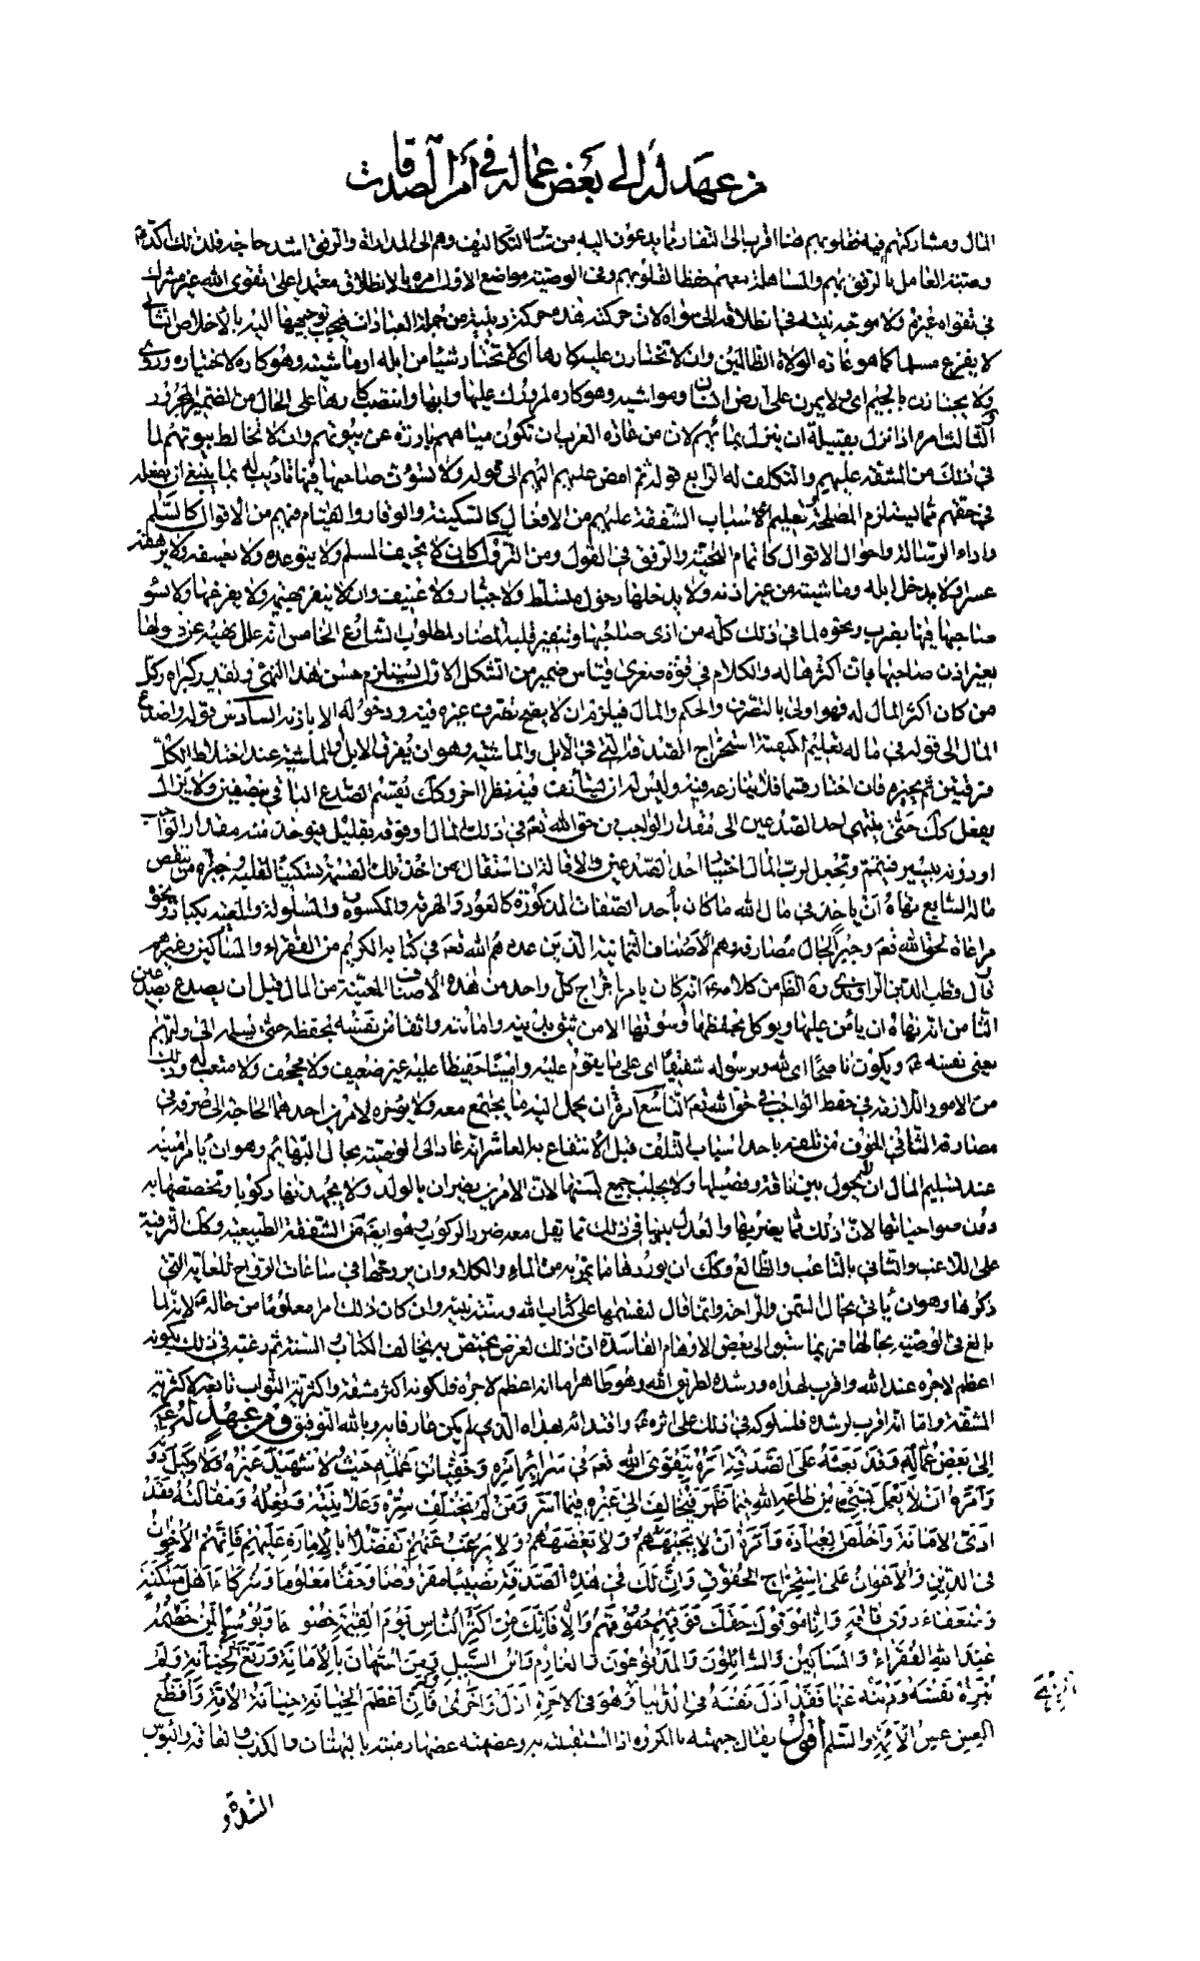 من عهد له إلى بعض عماله في أمر الصدقات
المال ومشاركتهم فيه فقلوبهم ضا اقرب الى النفار مما يدعون اليه من سائر التكاليف وهم الى المداراة والرفق اشد حاجة فلذلك اكد
وصيته العامل بالرفق بهم والمساهلة معهم حفظا لقلوبهم وفى الوصية مواضع الاول امره بالانطلاق معتمدا على تقوى الله غير مشرك
فى تقواه غيره ولا موجه نيته فى انطلاقه الى سواه لان حركته هذه حركة دينية من جملة العبادات فيجب توجيهها اليه بالاخلاص الثانى
لا يفزع مسلما كما هو عادة الولاة الظالمين وان لا تختارن عليه كارها اى لا تختار شيئا من ابله او ماشيته وهو كاره لاختياره وروى
ولا يجتازن بالجيم اى ولا يمرن على ارض انسان ومواشيه وهو كاره لمرورك عليها وبها وانتصب كارها على الحال من الضمير المجرور
الثالث امره اذا نزل بقبيلة ان ينزل بمائهم لان من عادة العرب ان تكون مياههم بارزة عن بيوتهم وان لا يخالط بيوتهم لما
فى ذلك من المشقة عليهم والتكلف له الرابع قوله ثم امض عليهم اليهم الى قوله ولا تسوءن صاحبها فيها تأديب له بما ينبغى ان يفعله
فى حقهم مما يستلزم المصلحة وتعليم لاسباب الشفقة عليهم من الافعال كالسكينة والوقار والقيام فيهم من الاقوال كالتسليم
واداء الرسالة واحوال الاقوال كاتمام التحية والرفق فى القول ومن التروك كان لا يخيف المسلم ولا يتوعده ولا يعسفه ولا يرهقه
عسرا ولا يدخل ابله وماشيته من غير اذنه ولا يدخلها دخول متسلط ولا جبار ولا عنيف وان لا ينفر بهيمة ولا يفزعها ولا يسوء
صاحبها فيها بضرب ونحوه لما فى ذلك كله من اذى صاحبها وتنفير قلبه المضاد لمطلوب الشارع الخامس انه علل نهيه عن دخولها
بغير اذن صاحبها بان اكثرها له والكلام فى قوة صغرى قياس ضمير من الشكل الاول يستلزم حسن هذا النهى وتقدير كبراه وكل
من كان اكثر المال له فهو اولى بالتصرف والحكم والمال فيلزم ان لا يصح تصرف غيره فيه ودخوله الا باذنه السادس قوله واصدع
المال الى قوله فى ماله تعليم لكيفية استخراج الصدقة التى فى الابل والماشية وهو ان يفرق الابل والماشية عند اختلاط الكل
فرقتين ثم يخيره فان اختار قسما فلا ينازعه فيه وليس له ان يستأنف فيه نظرا اخر وكك يقسم الصدع الباقى بنصفين ولا يزال
يفعل كك حتى ينتهى احد الصدعين الى مقدار الواجب من حق الله تعم فى ذلك المال او فوقه بقليل فيوخذ منه مقدار الواجب
او دونه بيسير فيتمم وتجعل لرب المال اختيار احد الصدعين والاقالة ان استقال من اخذ تلك القسمة تسكينا لقلبه وجبرا من نقص
ماله السابع نهاه ان ياخذ فى مال الله ما كان باحد الصفات المذكورة كالعود والهرمة والمكسورة والمسلولة والمعيبة
مراعاة لحق الله تعم وجبرا لحال مصارفه وهم الاصناف الثمانية الذين عددهم الله تعم فى كتابه الكريم من الفقراء والمساكين وغيرهم
قال قطب الدين الراوندى ره الظم من كلامه ع انه كان يامر باخراج كل واحد من هذه الاصناف المعينة من المال قبل ان يصدع بصدعين
الثامن انه نهاه ان يأمن عليها ويوكل بحفظها وسوقها الا من تثق بدينه وامانته واثقا من نفسه بحفظه حتى يسلمه الى وليهم
يعنى نفسه ع ويكون ناصحا اى لله ورسوله شفيقا اى على ما يقوم عليه وامينا حفيظا عليه غير ضعيف ولا مجحف ولا متعب له وذلك
من الامور اللازمة فى حفظ الواجب فى حق الله تعم التاسع امره ان يحمل اليه ما يجتمع معه ولا يؤخره لامرين احدهما الحاجة الى صرفه فى
مصارفه الثانى الخوف من تلفه باحد اسباب التلف قبل الانتفاع به العاشر انه عاد الى الوصية بحال البهائم وهو ان يأمر امينه
عند تسليم المال ان لا يحول بين ناقة وفصيلها ولا يحلب جميع لبنها لان الامرين يضران بالولد ولا يجهدنها ركوبا وتخصيصها به
دون صواحباتها لان ذلك مما يضر بها والعدل بينها فى ذلك مما يقل معه ضرر الركوب وهو ايضا من الشفقة الطبيعية وكك الترفيه
على اللاغب والتأنى بالناقب والظالع وكك ان يوردها ما تمر به من الماء والكلاء وان يروحها فى ساعات الرواح للغاية التى
ذكرها وهو ان يأتى بحال السمن والراحة وانما قال لنقسمها على كتاب الله وسنة نبيه وان كان ذلك امرا معلوما من حاله ع لانه لما
بالغ فى الوصية بحالها فربما سبق الى بعض الاوهام الفاسدة ان ذلك لغرض يختص به يخالف الكتاب والسنة ثم رغبه فى ذلك بكونه
اعظم لاجره عند الله واقرب لهداه ورشده لطريق الله وهو ظاهر اما انه اعظم لاجره فلكونه اكثر مشقة واكثرية الثواب تابعة لاكثرية
المشقة واما انه اقرب لرشده فلسلوكه فى ذلك على اثره ع واقتدائه بهداه الذى لم يكن عارفا به وبالله التوفيق ومن عهد له ع
الى بعض عماله وقد بعثه على الصدقة امره بتقوى الله تعم فى سرائر امره وخفيات عمله حيث لا شهيد غيره ولا وكيل دونه
وامره ان لا يعمل بشىء من طاعة الله فيما ظهر فيخالف الى غيره فيما اسر ومن لم يختلف سره وعلانيته وفعله ومقالته فقد
ادى الامانة واخلص العبادة وامره ان لا يجبههم ولا يعضههم ولا يرغب عنهم تفضلا بالامارة عليهم فانهم الاخوان
فى الدين والاعوان على استخراج الحقوق وان لك فى هذه الصدقة نصيبا مفروضا وحقا معلوما وشركاء اهل مسكنة
وضعفاء ذوى فاقة وانا موفوك حقك فوفهم حقوقهم والا فانك من اكثر الناس يوم القيمة خصوما وبؤسا لمن خصمه
عند الله الفقراء والمساكين والسائلون والمدفوعون والغارم وابن السبيل ومن استهان بالامانة ورتع فى الخيانة ولم
ينزه نفسه ودينه عنها فقد اذل نفسه فى الدنيا وهو فى الاخرة اذل واخزى وان اعظم الخيانة خيانة الامة وافظع
الغش غش الائمة والسلم اقول يقال جبهته بالمكروه اذا استقبلته به وعضهته عضها رميته بالبهتان والكذب والفاقة والبوس
الشدة و